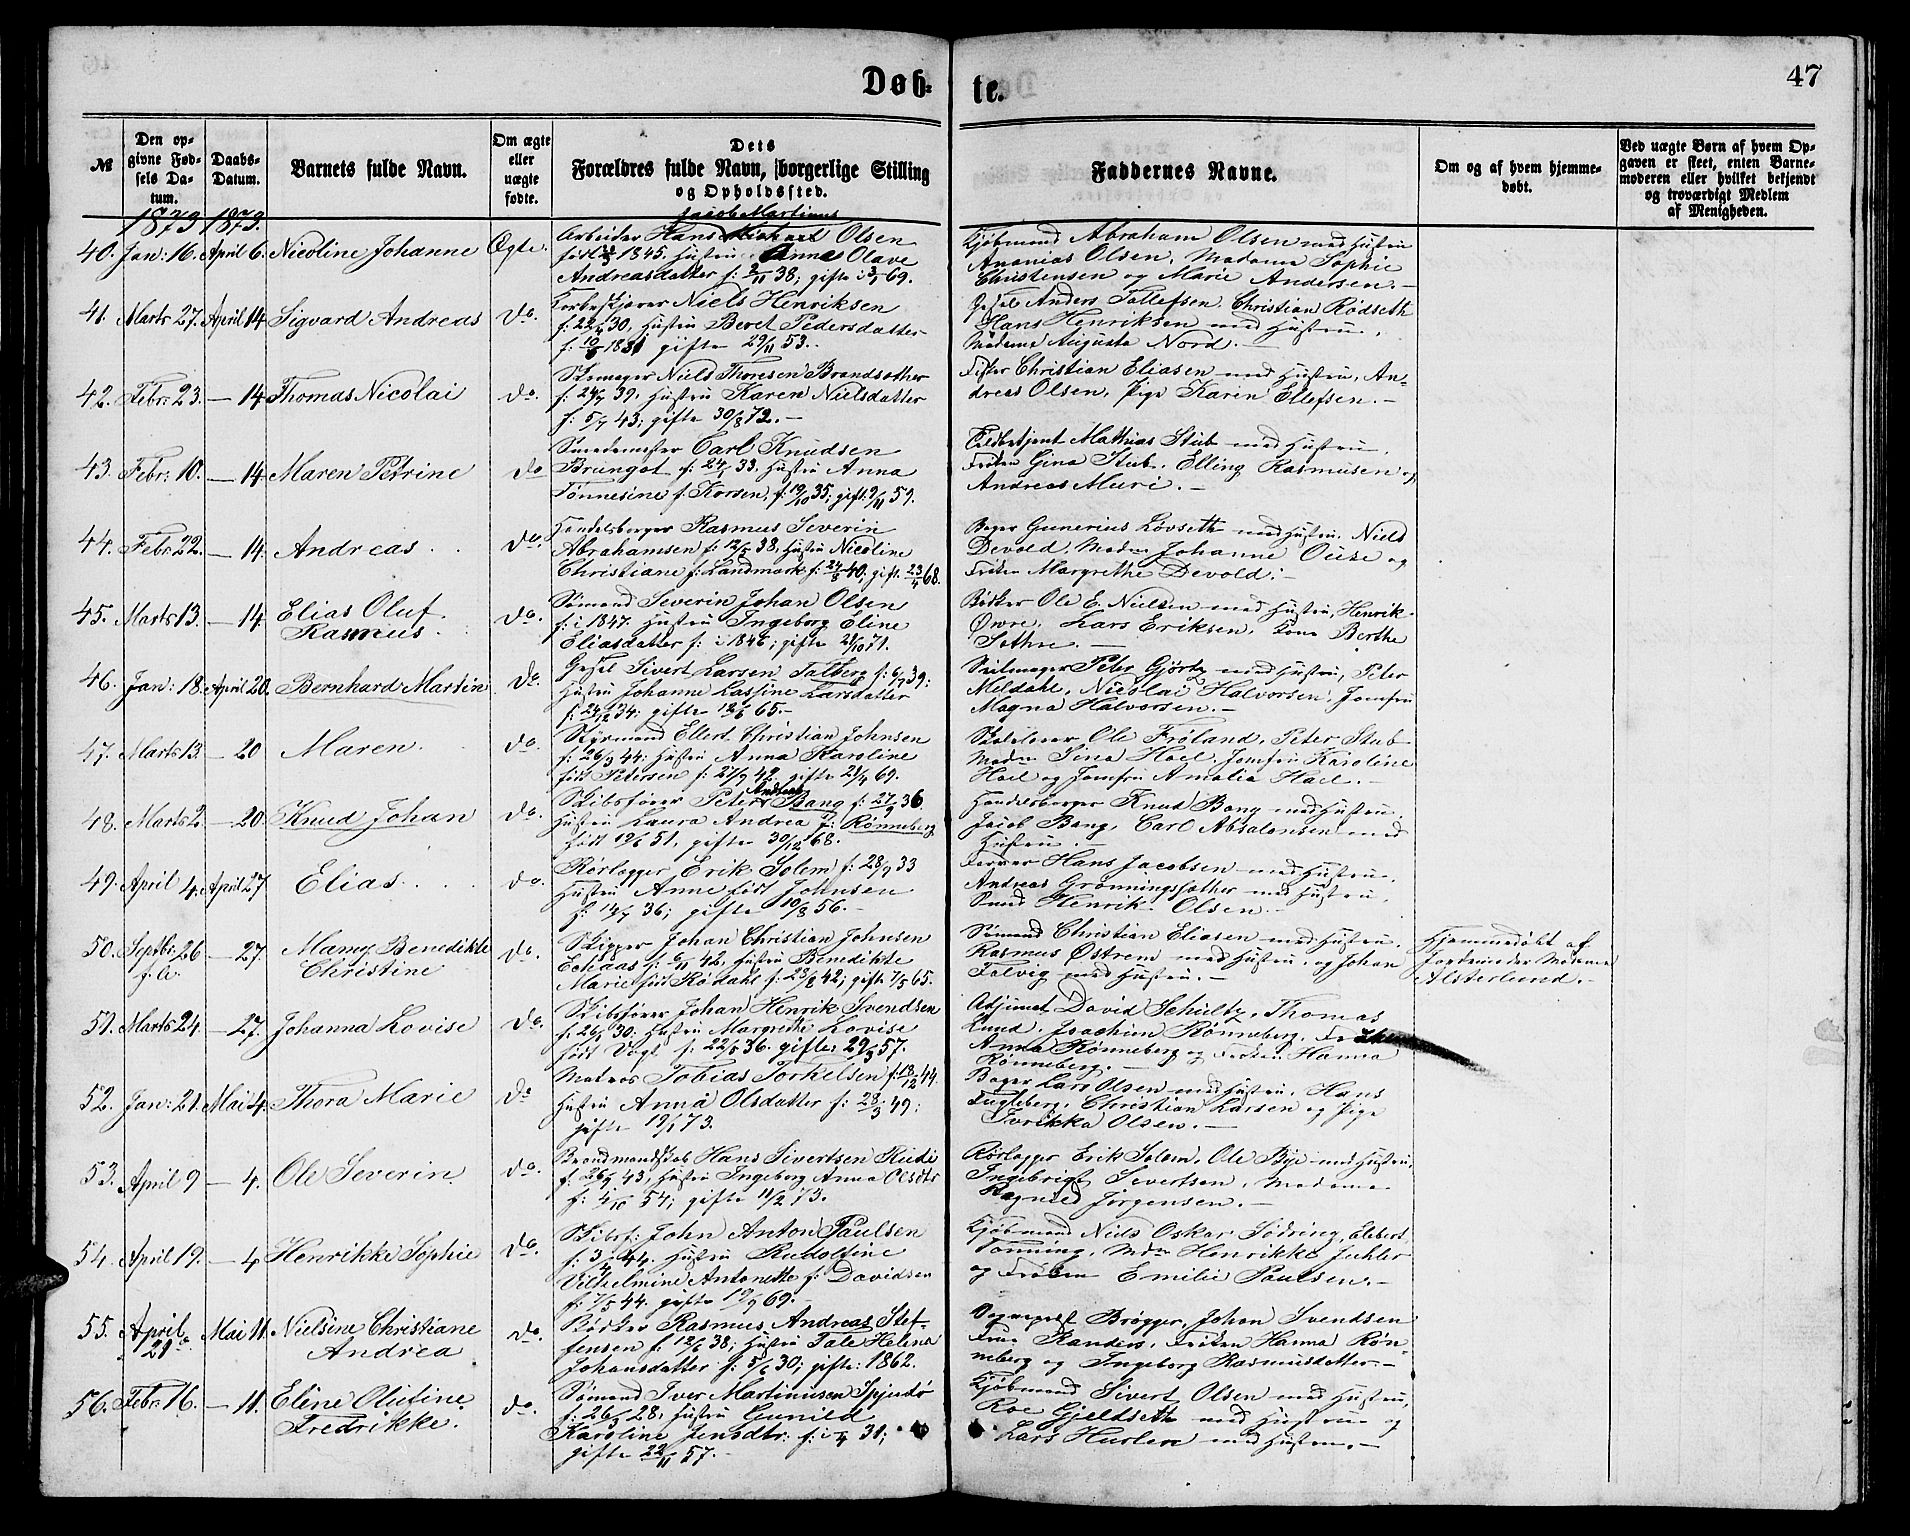 Døb-
te.
47
№
Den op-
givne Fød-
sels Da-
tum.
Daabs-
Datum.
Barnets fulde Navn.
Om ægte
eller
uægte
fødte.
Dets
Forældres fulde Navn, borgerlige Stilling
og Opholdssted.
Faddernes Navne.
Om og af hvem hjemme-
døbt.
Ved uægte Børn af hvem Op-
gaven er skeet, enten Barne-
moderen eller hvilket bekjendt
og troværdigt Medlem
af Menigheden.
1873 1873.
40. Jan: 16. April 6. Nicoline Johanne Ægte.
Jacob Martinus
Arbeider Hans Olsen
født 1845. Hustru Anna Olave
Andreasdatter f: 2/11 38; gifte i 69.
Kjøbmand Abraham Olsen med Hustru
Ananias Olsen, Madame Sophie
Christensen og Marie Andersen.-
41. Marts 27. April 14. Sigvard Andreas do.
Niels Henriksen
30, Hustru Beret Pedersdatter
f: 10/8 1831 gifte 29/11 53.
Anders Tollefsen, Christian Rødseth
Hans Henriksen med Hustru,
Madame Augusta Nord.-
42. Febr: 23. — 14. Thomas Nicolai do.
Skomager Niels Thoresen Brandsæther
39, Hustru Karen Nielsdatter
43; gifte 30/8 72.-
Fisker Christian Eliasen med Hustru, An-
dreas Olsen, Pige Karin Ellefsen.-
43. Febr: 10. — 14. Maren Petrine do
Smedemester Carl Knudsen
Brungot f: 33. Hustru Anna
Tønnesine f. Korsen, f. 19/10 35; gift. 9/11 59.
Toldbetjent Mathias Stub med Hustru,
Frøken Gina Stub, Elling Rasmusen og
Andreas Muri.-
44. Febr: 22. — 14. Andreas do.
Handelsborger Rasmus Severin
Abrahamsen f: 38, Hustru Nicoline
Christiane f: Landmark f: 24/5 40; gift. 23/4 68.
Bager Gunerius Løvseth med Hustru, Niels
Devold, Johanne og
Frøken Margrethe Devold.-
45. Marts 13. — 14. Elias Oluf
Rasmus. do.
Sømand Severin Johan Olsen
f: i 1847. Hustru Ingeborg Eline
Eliasdatter f: i 1846; gifte 71.
Bødker Ole E. Nielsen med Hustru, Henrik
Øwre, Lars Eriksen, Berthe
Sethre.-
46. Jan: 18. April 20. Bernhard Martin do.
Sivert Larsen Talberg f: 6/9 39;
Hustru Johanne Lassine Larsdatter
f: 24/12 34; gifte 65.-
Seilmager Peter Gjørtz med Hustru, Peter
Meldahl, Nicolai Halvorsen, Jomfru
Magna Halvorsen.-
47. Marts 13. — 20 Maren. do.
Styrmand Ellert Christian Johnsen
f: 26/3 44. Hustru Anna Karoline
født Petersen f: 42. gifte 69.
Ole Frøland, Peter Stub
Sina Hoel, Jomfru Karoline
Hoel og Jomfru Amalia Hoel.-
48. Marts 2. — 20. Knud Johan do.
Andreas
Skibsfører Peter Bang f: 27/9 36.
Hustru Laura Andrea f: Rønneberg
født 51, gifte 30/12 68.
Handelsborger Knud Bang med Hustru,
Jacob Bang, Carl Absalonsen med
Hustru.-
49. April 4. April 27 Elias. do.
Rørlægger Erik Solem f: 33
Hustru Anne født Johnsen
f: 36; gifte 10/8 56.-
Farver Hans Jacobsen med Hustru,
Andreas Grønningsæther med Hustru,
Henrik Olsen.-
50. Septbr: 26
— 27. Mamy Benedikte
Christine do.
Skipper Johan Christian Johnsen
f: 6/11 42, Hustru Benedikte
Marie født Rødahl f: 23/8 42; gifte 7/5 65.
Sømand Christian Eliasen med Hustru,
Rasmus Østrem med Hustru, og Johan
Talvig med Hustru.-
Hjemmedøbt af
Jordemoder Madame
Alsterlund.-
51. Marts 24. — 27. Johanna Lovise do.
Skibsfører Johan Henrik Svendsen
30. Hustru Margrethe Lovise
født Vogt f: 36. gifte: 29/3 57.
Adjunct David Schultz, Thomas
Lund, Joachim Rønneberg, Frøken
Anna Rønneberg og Frøken Hanna
Rønneberg.-
52. Jan: 21. Mai 4. Thora Marie do
Matros Tobias Torkelsen f: 18/12 44.
Hustru Anna Olsdatter f: 28/3 49;
gifte 73.
Bager Lars Olsen med Hustru, Hans
Fugleberg, Christian Larsen og Pige
Ivrikka Olsen.-
53. April 9 — 4. Ole Severin do.
Brandmandskab Hans Sivertsen
43, Hustru Ingeborg Anna Olsdtr
f: 4/10 54; gifte 73.
Rørlægger Erik Solem, Ole Bye med Hustru,
Ingebrigt Severtsen, Madame
Ragnild Jørgensen.-
54. April 19. — 4 Henrikke Sophie do.
Skibsf: John Anton Paulsen
44. Hustru Rudolfine
Vilhelmine Antonette f: Davidsen
f: 7/5 44. gifte 69.-
Kjøbmand Niels Oskar Sødring, Elebert
Tonning, Henrikke Juhler
og Frøken Emilie Paulsen.-
55. April
21 Mai 11. Nielsine Christiane
Andrea do.
Bødker Rasmus Andreas Stef-
fensen f: 38; Hustru Tale Helena
Johansdatter f: 30; gifte: 1862.
Brøgger, Johan Svendsen
Frue Randers, Frøken Hanna Røn-
neberg og Ingeborg Rasmusdatter.-
56. Febr: 16. — 11. Eline Olufine
Fredrikke. do.
Sømand Iver Martinusen
28, Hustru Gunild
Karoline Jensdtr: f: 31;
gifte 22/11 57.-
Kjøbmand Sivert Olsen med Hustru,
Roe Gjeldseth med Hustru og
Lars med Hustru.-